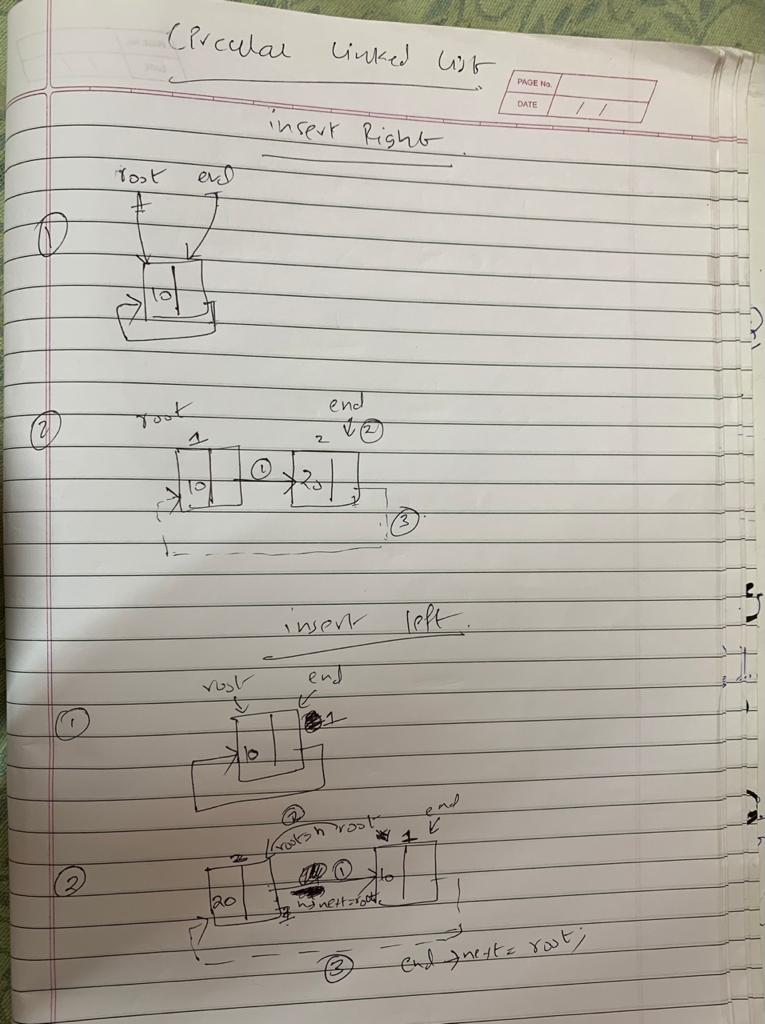 Circular Linked List
PAGE No.
DATE / /
insert Right
root end
①
10
②
root
end
1
2
②
10
①
20
③
insert left
root end
①
1
10
②
②
root=n root
end
2
1
①
20
10
n→next=root;
③
end→next = root;